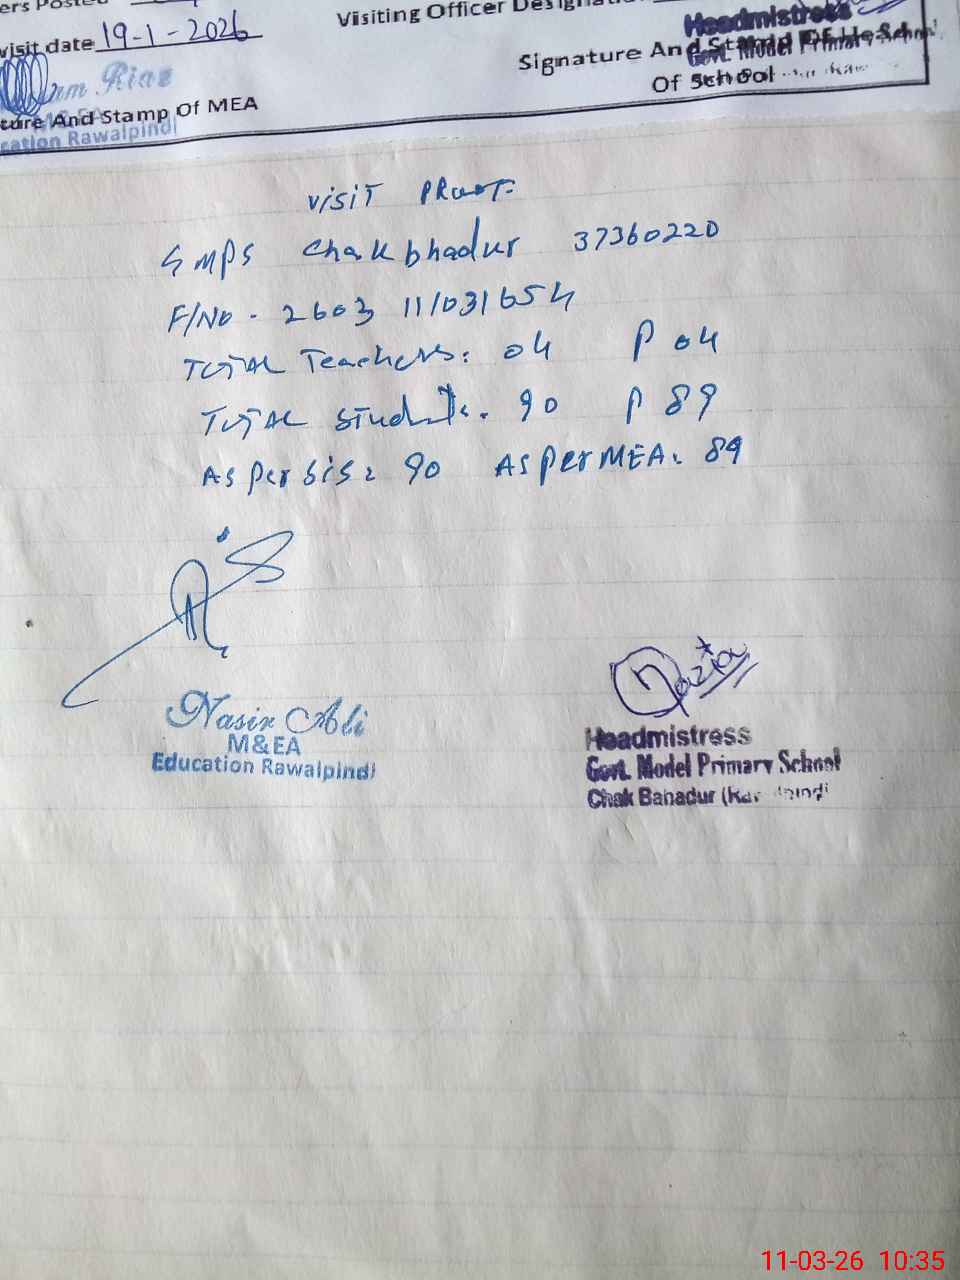 ers Posted
Visiting Officer Designation
visit date 19-1-2026
Headmistress
Govt. Model Primary School
Signature And Stamp Of Head
Of School
Riaz
ture And Stamp Of MEA
M&EA
cation Rawalpindi
Visit Proof.
GMPS Chak bhadur 37360220
F/No - 2603 11/031654
Total Teachers: 04 P 04
Total Students. 90 P 89
As per SIS: 90 As per MEA. 89
Nasir Ali
M&EA
Education Rawalpindi
Nazia
Headmistress
Govt. Model Primary School
Chak Bahadur (Rawalpindi
11-03-26 10:35